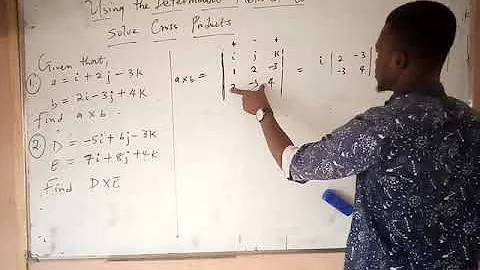 Using the Determinant
Solve Cross Products
Given that,
1. a = i + 2j - 3k
b = 2i - 3j + 4k
Find a x b
2. D = -5i + 6j - 3k
E = 7i + 8j + 4k
Find D x E
+ - +
a x b = | i j k | = i | 2 -3 |
| 1 2 -3 | | -3 4 |
| 2 -3 4 |